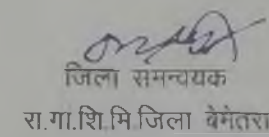 जिला समन्वयक
रा.गा.शि.मि.जिला बेमेतरा